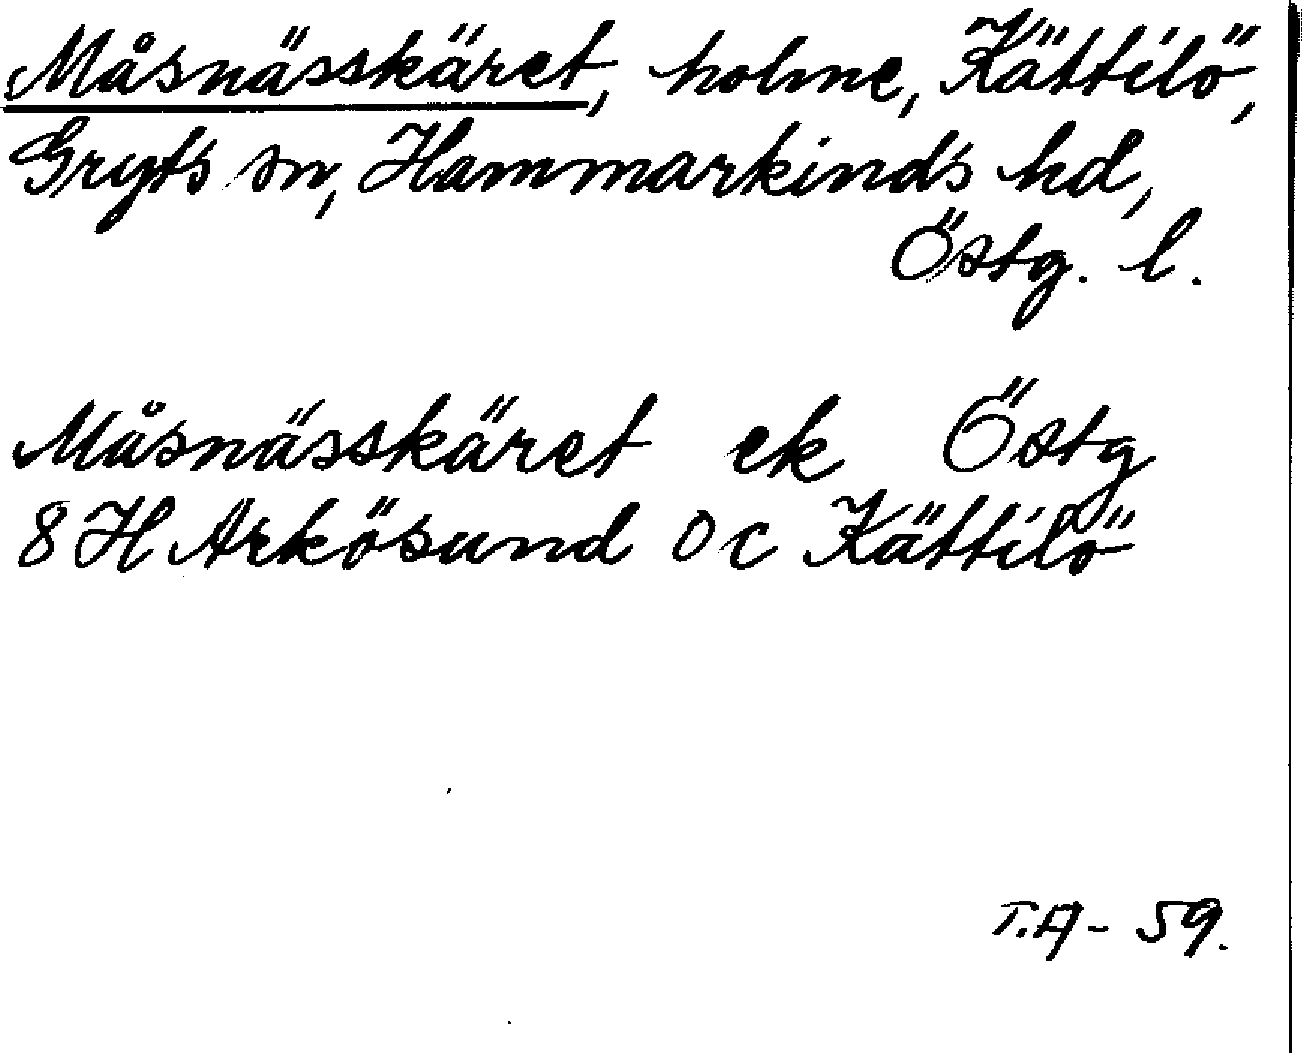 Måsnässkäret, holme, Kättilö,
Gryts sn, Hammarkinds hd,
Östg. l.
Måsnässkäret ek Östg
8 H Arkösund 0 c Kättilö
T.A - 59.